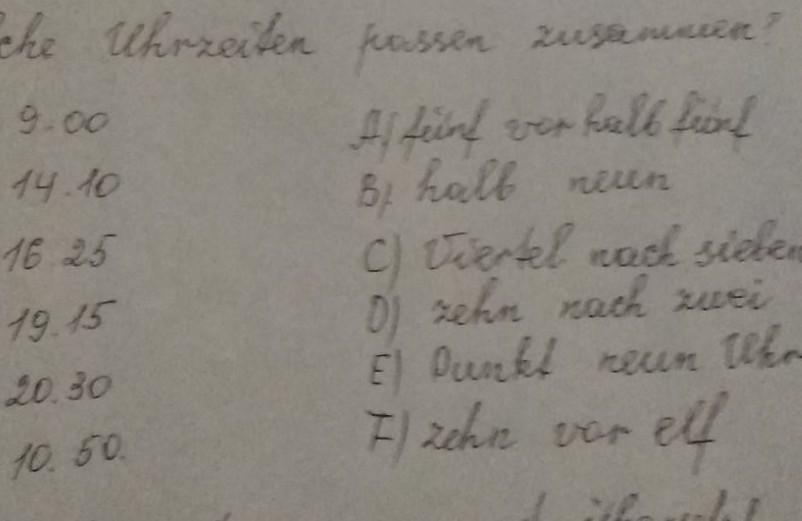 che Uhrzeiten passen zusammen?
9.00 A) fünf vor halb fünf
14.10 B) halb neun
16 25 C) Viertel nach sieben
19.15 D) zehn nach zwei
20.30 E) Punkt neun Uhr
10. 50. F) zehn vor elf